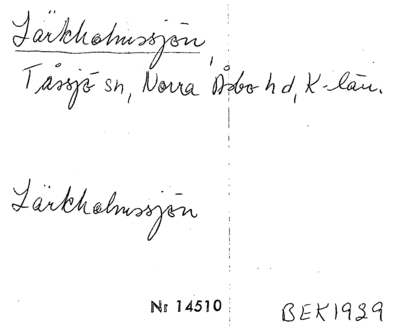 Lärkholmssjön,
Tåssjö sn, Norra Åsbo hd, K-län.
Lärkholmssjön
Nr 14510
BEK1929